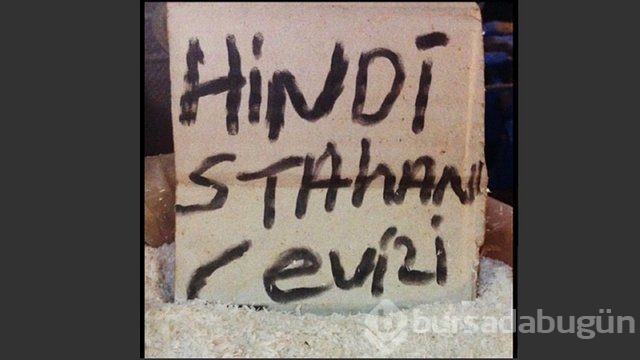 HİNDİ
STAhANI
Cevizi
bursadabugün